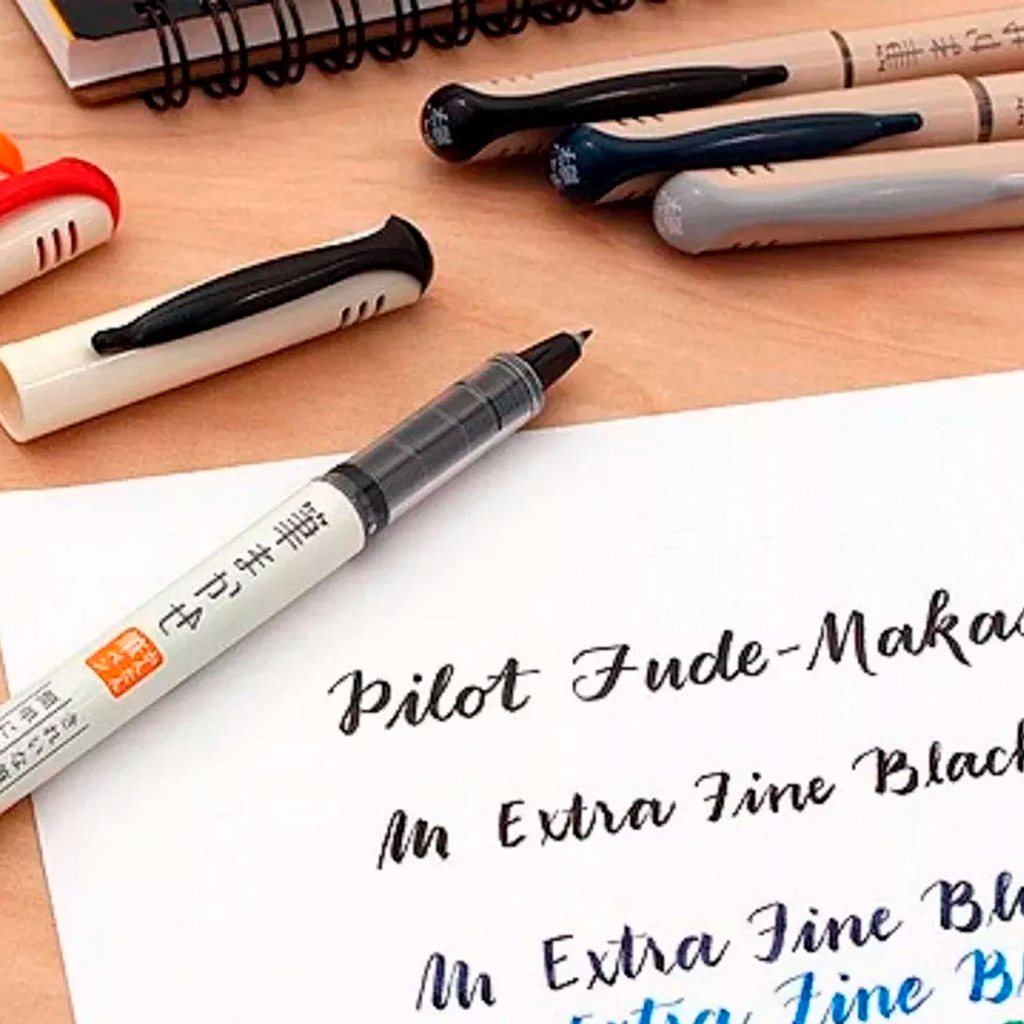 筆まかせ
筆まかせ
かんたん
筆ペン
簡単に
きれいな
Pilot Fude-Makas
m Extra Fine Black
m Extra Fine Blu
Extra Fine Bl